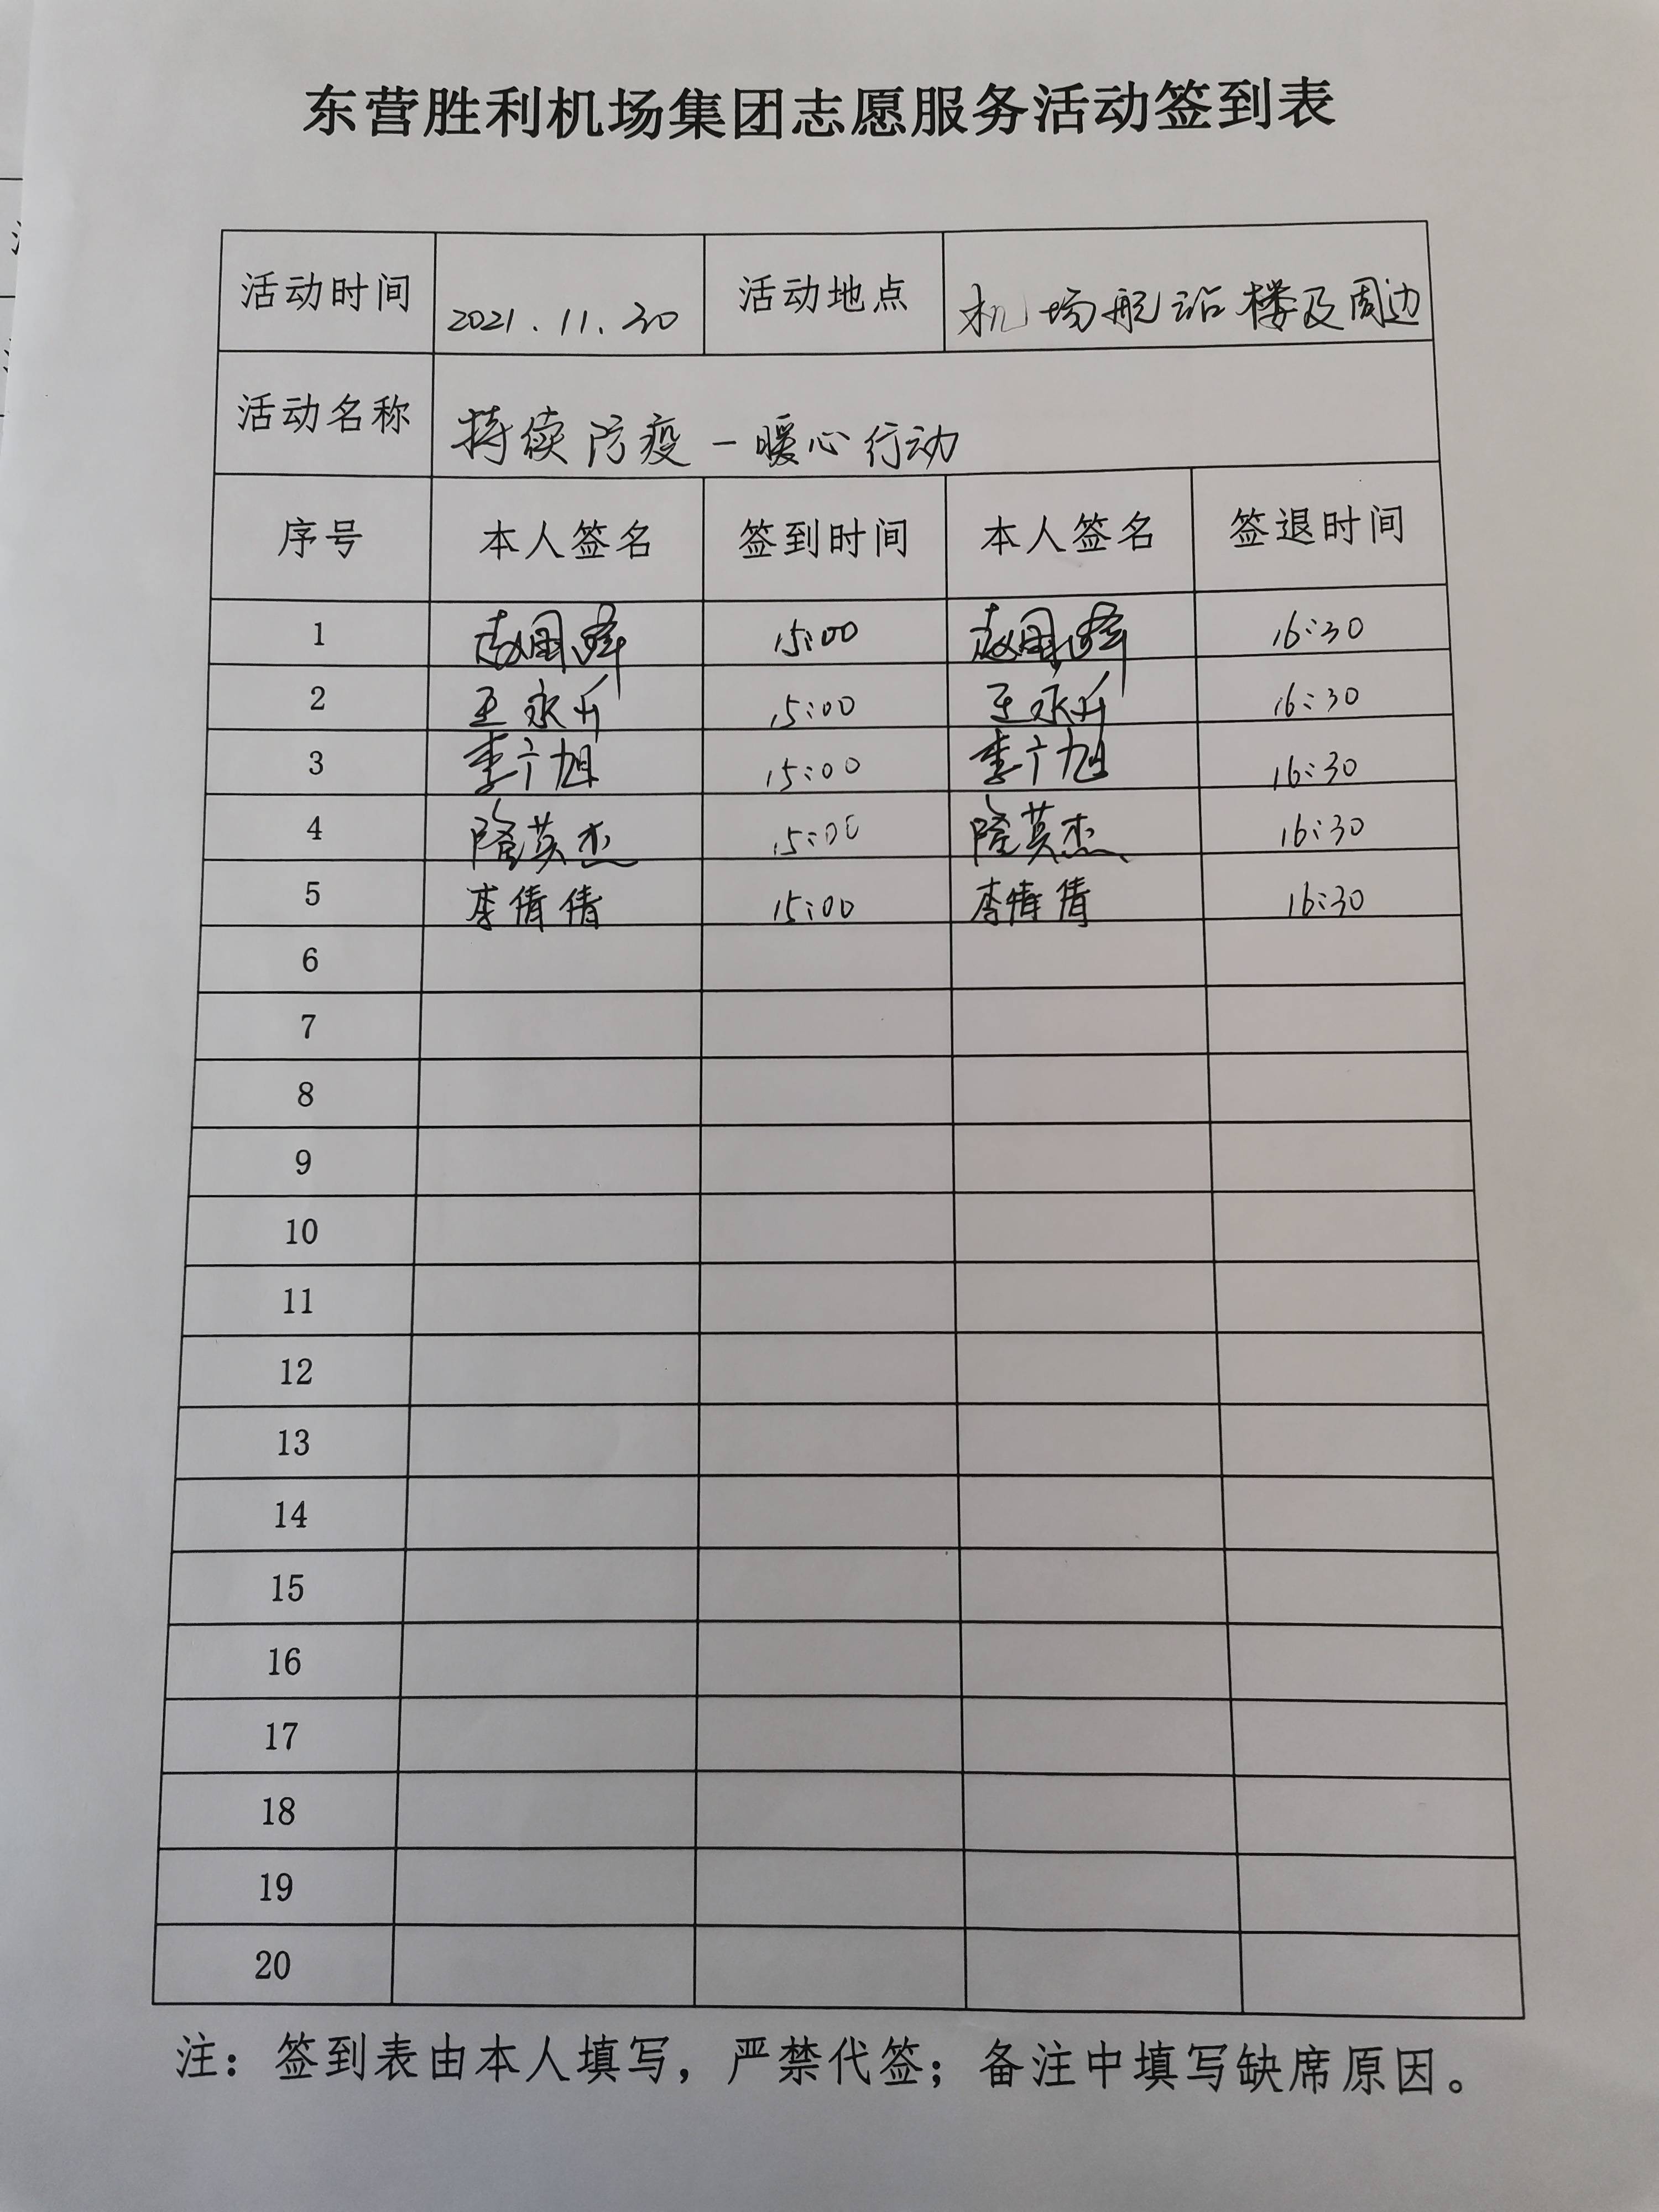 东营胜利机场集团志愿服务活动签到表
活动时间 2021.11.30 活动地点 机场航站楼及周边
活动名称 持续防疫-暖心行动
序号 本人签名 签到时间 本人签名 签退时间
1 赵国 15:00 赵国 16:30
2 王永升 15:00 王永升 16:30
3 李广旭 15:00 李广旭 16:30
4 隆英杰 15:00 隆英杰 16:30
5 李倩倩 15:00 李倩倩 16:30
6
7
8
9
10
11
12
13
14
15
16
17
18
19
20
注：签到表由本人填写，严禁代签；备注中填写缺席原因。